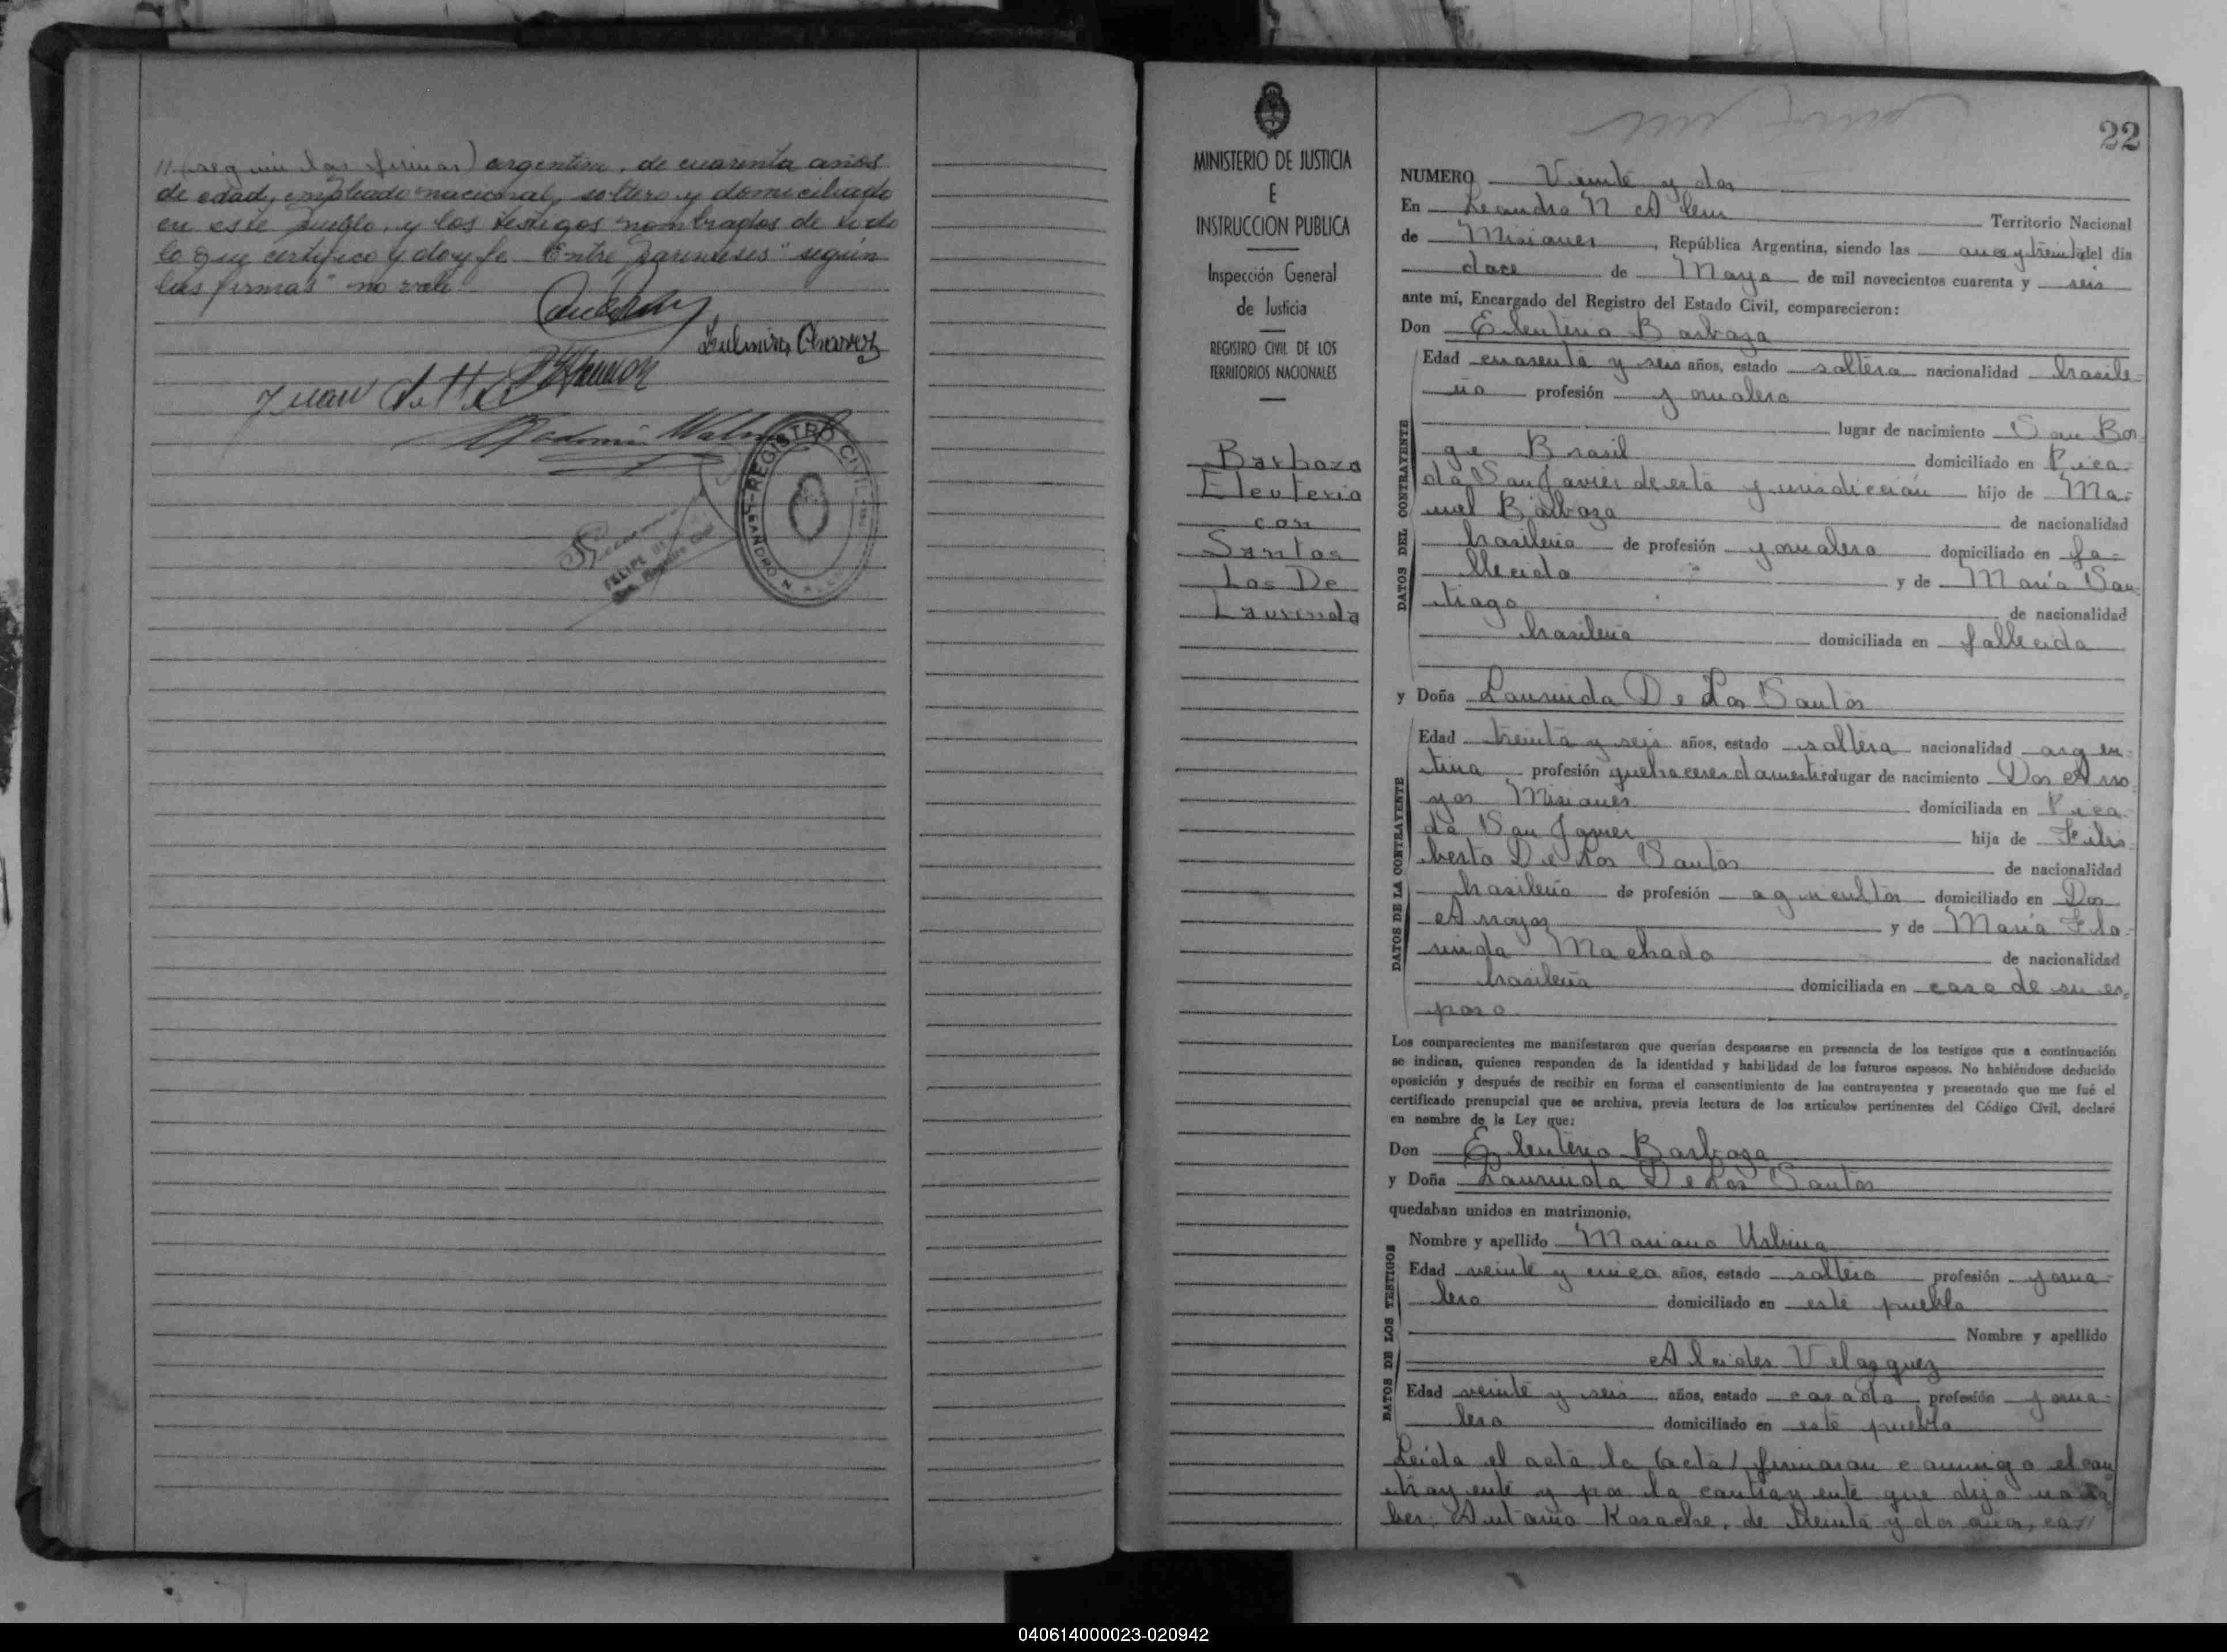 argentino, de cuarenta años
de edad, empleado nacional, soltero y domiciliado
en este pueblo, y los testigos nombrados de todo
lo que certifico y doy fe. Entre parentesis "según
las firmas" no vale.
Juan
REGISTRO CIVIL
LEANDRO N. ALEM
MINISTERIO DE JUSTICIA
E
INSTRUCCION PUBLICA
Inspección General
de Justicia
REGISTRO CIVIL DE LOS
TERRITORIOS NACIONALES
Barboza
Eleuterio
con
Santos
Los De
Laurinda
22
NUMERO Veinte y dos
En Leandro N Alem Territorio Nacional
de Misiones, República Argentina, siendo las once y treinta del día
doce de Mayo de mil novecientos cuarenta y seis
ante mí, Encargado del Registro del Estado Civil, comparecieron:
Don Eleuterio Barboza
DATOS DEL CONTRAYENTE
Edad cuarenta y seis años, estado soltero nacionalidad brasile-
ño profesión jornalero
lugar de nacimiento San Bor-
ge Brasil domiciliado en Pica-
da San Javier de esta jurisdicción hijo de Ma-
nuel Barboza de nacionalidad
brasileño de profesión jornalero domiciliado en fa-
llecido y de María San-
tiago de nacionalidad
brasileña domiciliada en fallecida
y Doña Laurinda De Los Santos
DATOS DE LA CONTRAYENTE
Edad treinta y seis años, estado soltera nacionalidad argen-
tina profesión quehaceres domesticos lugar de nacimiento Dos Arro-
yos Misiones domiciliada en Pica-
da San Javier hija de Felis-
berto De Los Santos de nacionalidad
brasileño de profesión agricultor domiciliado en Dos
Arroyos y de María Flo-
rinda Machado de nacionalidad
brasileña domiciliada en casa de su es-
poso.
Los comparecientes me manifestaron que querían desposarse en presencia de los testigos que a continuación
se indican, quienes responden de la identidad y habilidad de los futuros esposos. No habiéndose deducido
oposición y después de recibir en forma el consentimiento de los contrayentes y presentado que me fué el
certificado prenupcial que se archiva, previa lectura de los artículos pertinentes del Código Civil, declaré
en nombre de la Ley que:
Don Eleuterio Barboza
y Doña Laurinda De Los Santos
quedaban unidos en matrimonio.
DATOS DE LOS TESTIGOS
Nombre y apellido Mariano Urbina
Edad veinte y cinco años, estado soltero profesión jorna-
lero domiciliado en este pueblo
Nombre y apellido
Alcides Velazquez
Edad veinte y seis años, estado casado profesión jorna-
lero domiciliado en este pueblo
Leida el acta la (acta) firmaron conmigo el con
trayente y por la contrayente que dijo no sa
ber: Antonio Kosache, de treinta y dos años, ca//
040614000023-020942